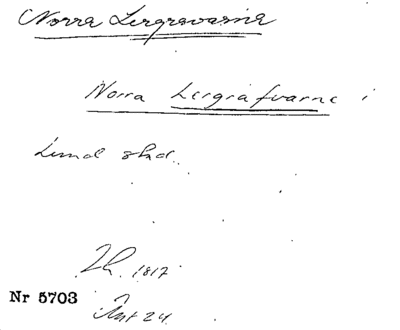 Norra Lergravarna
Norra Lergrafvarne i
Lund stad.
1817
Nr 5703
24